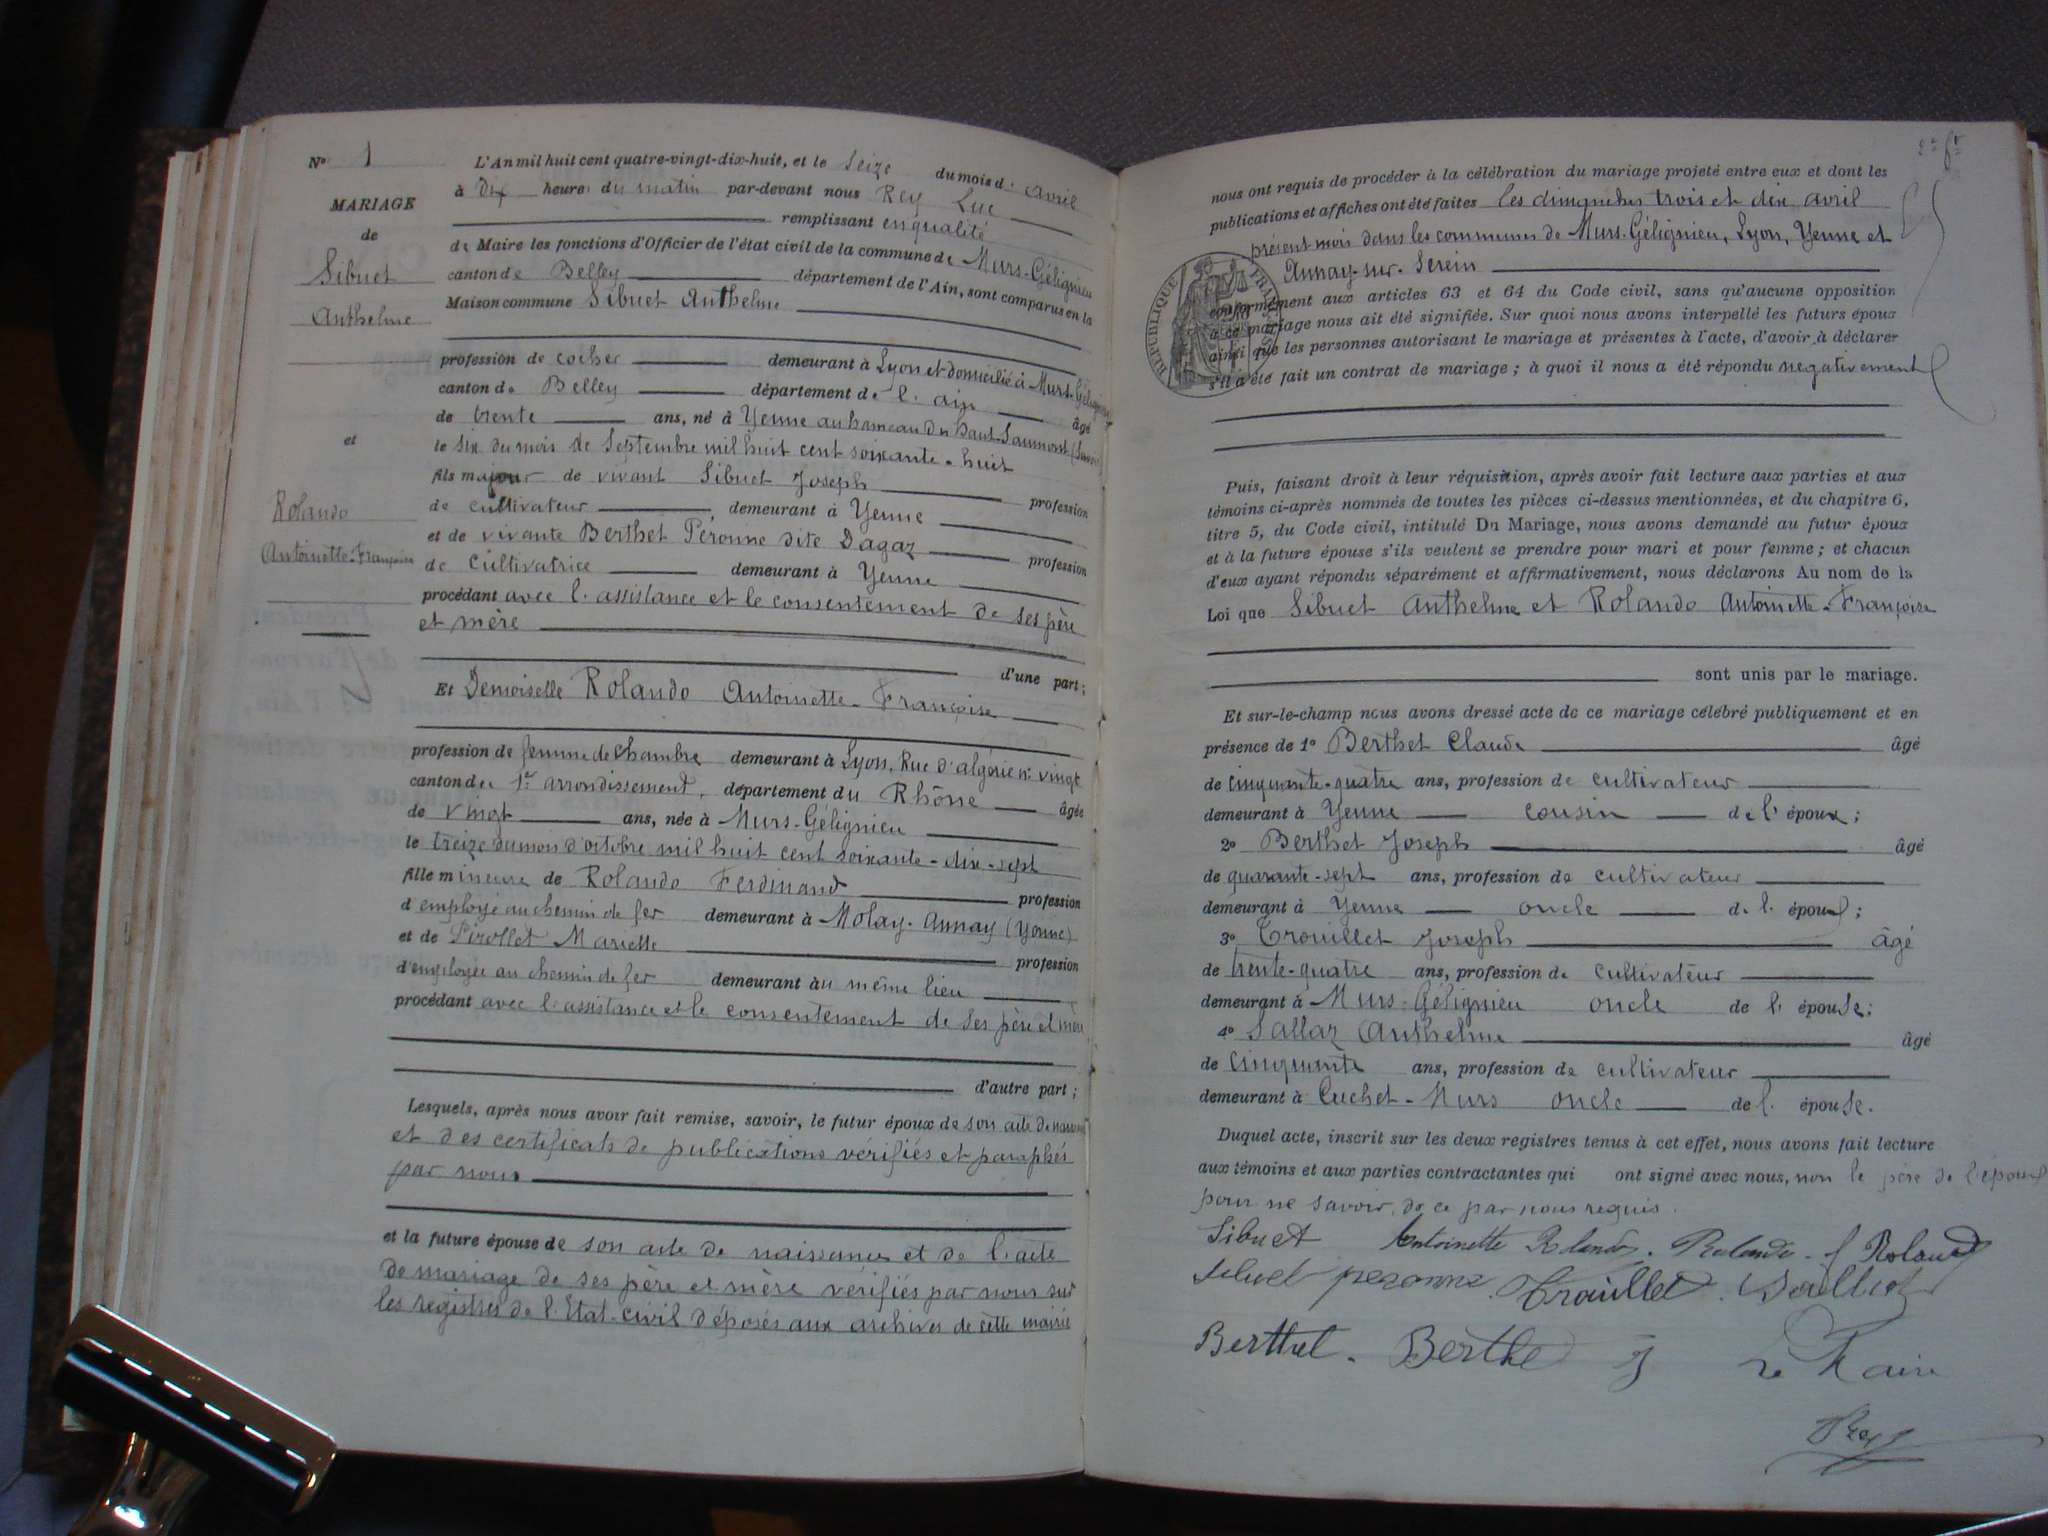 N° 1
MARIAGE
de
Sibuet
Anthelme
et
Rolando
Antoinette-Françoise
L'An mil huit cent quatre-vingt-dix-huit, et le seize du mois d' avril
à dix heures du matin par-devant nous Rey Luc
remplissant en qualité
de Maire les fonctions d'Officier de l'état civil de la commune de Murs-Gélignieu
canton de Belley département de l'Ain, sont comparus en la
Maison commune Sibuet Anthelme
profession de cocher demeurant à Lyon et domicilié à Murs-Gélignieu
canton de Belley département de l'ain âgé
de trente ans, né à Yenne au hameau du haut-Somont (Savoie)
le six du mois de Septembre mil huit cent soixante-huit
fils majeur de vivant Sibuet Joseph profession
de cultivateur, demeurant à Yenne
et de vivante Berthet Péronne dite Dagaz profession
de cultivatrice demeurant à Yenne
procédant avec l'assistance et le consentement de ses père
et mère
d'une part;
Et Demoiselle Rolando Antoinette-Françoise
profession de femme de chambre demeurant à Lyon, Rue d'algérie n° vingt
canton de 1er arrondissement, département du Rhône âgée
de vingt ans, née à Murs-Gélignieu
le treize du mois d'octobre mil huit cent soixante-dix-sept
fille mineure de Rolando Ferdinand profession
d'employé au chemin de fer demeurant à Molay-Annay (Yonne)
et de Pirollet Mariette profession
d'employée au chemin de fer demeurant au même lieu
procédant avec l'assistance et le consentement de ses père et mère
d'autre part;
Lesquels, après nous avoir fait remise, savoir, le futur époux de son acte de naissance
et des certificats de publications vérifiés et paraphés
par nous
et la future épouse de son acte de naissance et de l'acte
de mariage de ses père et mère vérifiés par nous sur
les registres de l'Etat-civil déposés aux archives de cette mairie
nous ont requis de procéder à la célébration du mariage projeté entre eux et dont les
publications et affiches ont été faites les dimanches trois et dix avril
présent mois dans les communes de Murs-Gélignieu, Lyon, Yenne et
Annay-sur-Serein
conformément aux articles 63 et 64 du Code civil, sans qu'aucune opposition
à ce mariage nous ait été signifiée. Sur quoi nous avons interpellé les futurs époux
ainsi que les personnes autorisant le mariage et présentes à l'acte, d'avoir à déclarer
s'il a été fait un contrat de mariage; à quoi il nous a été répondu negativement
RÉPUBLIQUE FRANÇAISE
Puis, faisant droit à leur réquisition, après avoir fait lecture aux parties et aux
témoins ci-après nommés de toutes les pièces ci-dessus mentionnées, et du chapitre 6,
titre 5, du Code civil, intitulé Du Mariage, nous avons demandé au futur époux
et à la future épouse s'ils veulent se prendre pour mari et pour femme; et chacun
d'eux ayant répondu séparément et affirmativement, nous déclarons Au nom de la
Loi que Sibuet Anthelme et Rolando Antoinette-Françoise
sont unis par le mariage.
Et sur-le-champ nous avons dressé acte de ce mariage célébré publiquement et en
présence de 1° Berthet Claude âgé
de cinquante-quatre ans, profession de cultivateur
demeurant à Yenne cousin de l'époux;
2° Berthet Joseph âgé
de quarante-sept ans, profession de cultivateur
demeurant à Yenne oncle de l'époux;
3° Trouillet Joseph âgé
de trente-quatre ans, profession de cultivateur
demeurant à Murs-Gélignieu oncle de l'épouse;
4° Sallaz Anthelme âgé
de cinquante ans, profession de cultivateur
demeurant à Cuchet-Murs oncle de l'épouse.
Duquel acte, inscrit sur les deux registres tenus à cet effet, nous avons fait lecture
aux témoins et aux parties contractantes qui ont signé avec nous, non le père de l'époux
pour ne savoir, de ce par nous requis.
Sibuet Antoinette Rolando. Rolando. f Rolando
Sibuet peronne. Trouillet.
Berthet. Berthe J Le Maire
Rey